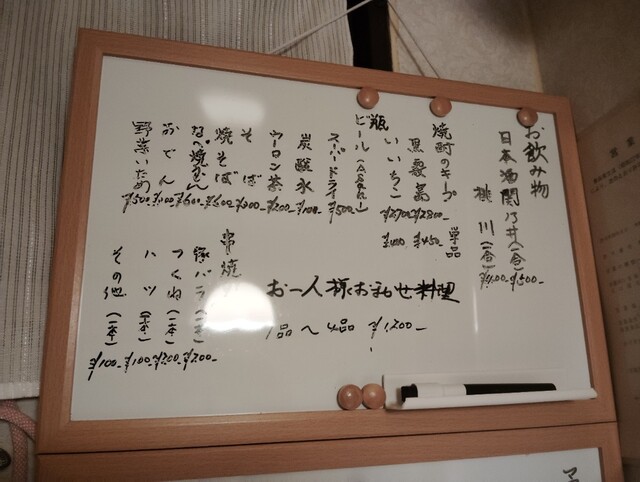 お飲み物
日本酒 関乃井(一合) ¥500-
桃川(一合) ¥400-
焼酎のキープ 単品
黒霧島 ¥2800- ¥450-
いいちこ ¥2700- ¥400
瓶ビール(Asahi)
スーパードライ ¥500-
炭酸水 ¥100-
ウーロン茶 ¥200-
そば
焼そば
なべ焼うどん
おでん
野菜いため ¥500-
お一人様おまかせ料理
1品〜4品 ¥1200-
串焼
豚バラ ¥200-
つくね(一本) ¥200-
ハツ(一本) ¥100-
その他(一本) ¥100-